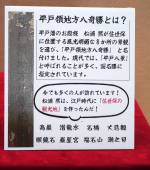 平戸領地方八奇勝とは？
平戸藩のお殿様 松浦 熈が佐世保
に位置する風光明媚な8か所の景観
を選び、「平戸領地方八奇勝」と名
付けました。現代では、「平戸八景」
と呼ばれることが多く、国名勝に
指定されています。
今でも多くの人が訪れています！
松浦 熈は、江戸時代に「佐世保の
観光地」を作ったんだ！
高巌 潜龍水 石橋 大悲観
眼鏡石 巌屋宮 福石山 潮之目